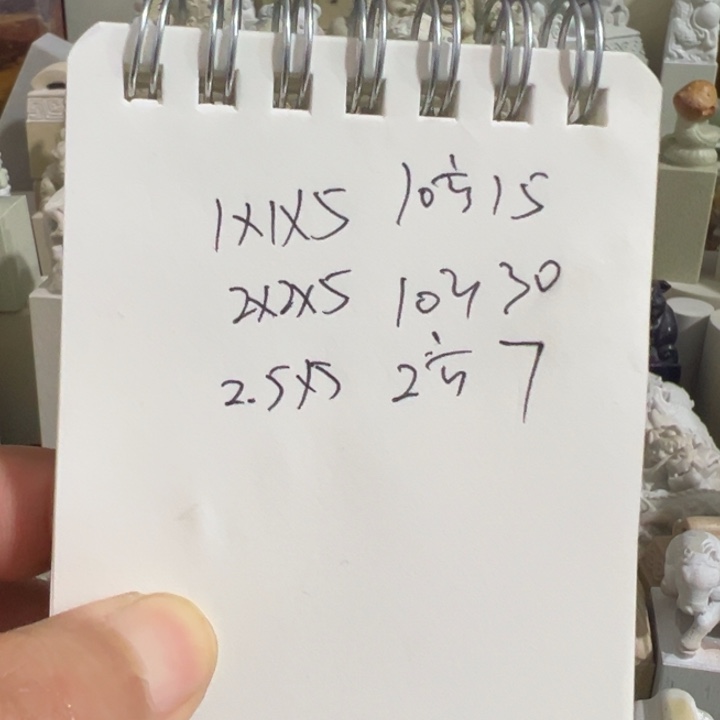 1×1×5 10方15
2×2×5 10方30
2.5×5 2方7